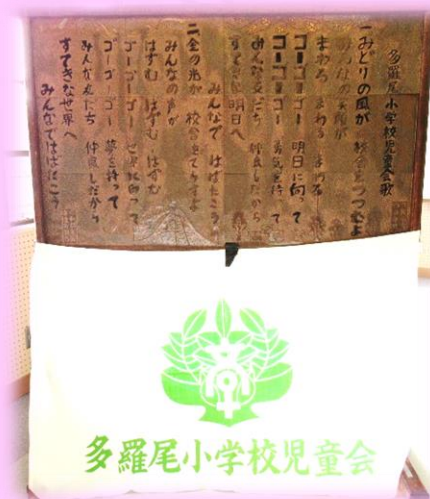 多羅尾小学校児童会歌
一みどりの風が 校舎をつつむよ
みんなの笑顔が
まわる まわる まわる
ゴーゴーゴー 明日に向って
ゴーゴーゴー 勇気を持って
みんな友だち 仲良しだから
すてきな明日へ
みんなで はばたこう
二金の光が 校舎をてらすよ
みんなの声が
はずむ はずむ はずむ
ゴーゴーゴー 世界に向って
ゴーゴーゴー 夢を持って
みんな友だち 仲良しだから
すてきな世界へ
みんなではばたこう
多羅尾小学校児童会